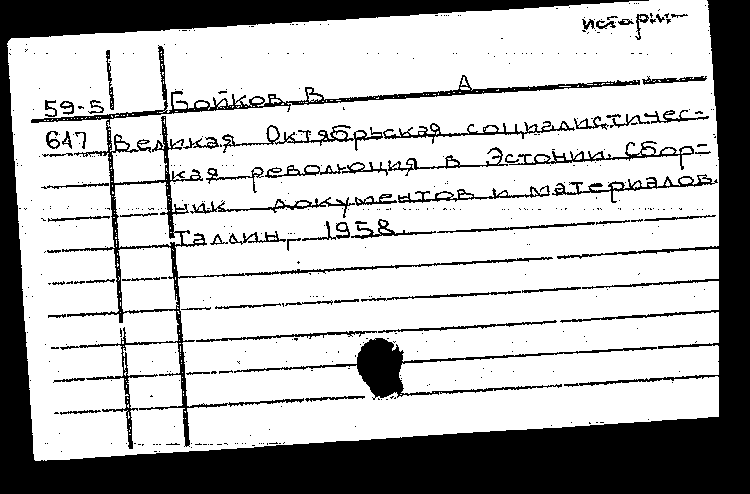 истории
59-5 Бойков, В А
647 Великая Октябрьская социалистичес-
кая революция в Эстонии. Сбор-
ник документов и материалов.
Таллин, 1958.